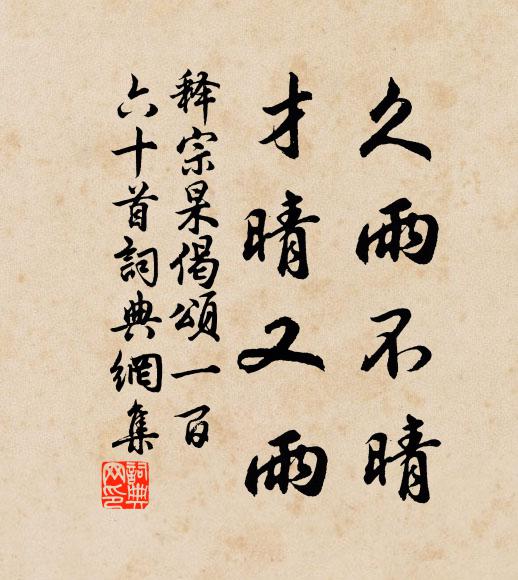 久雨不晴
才晴又雨
释宗杲偈頌一百
六十首詞典網集
詞典
网印